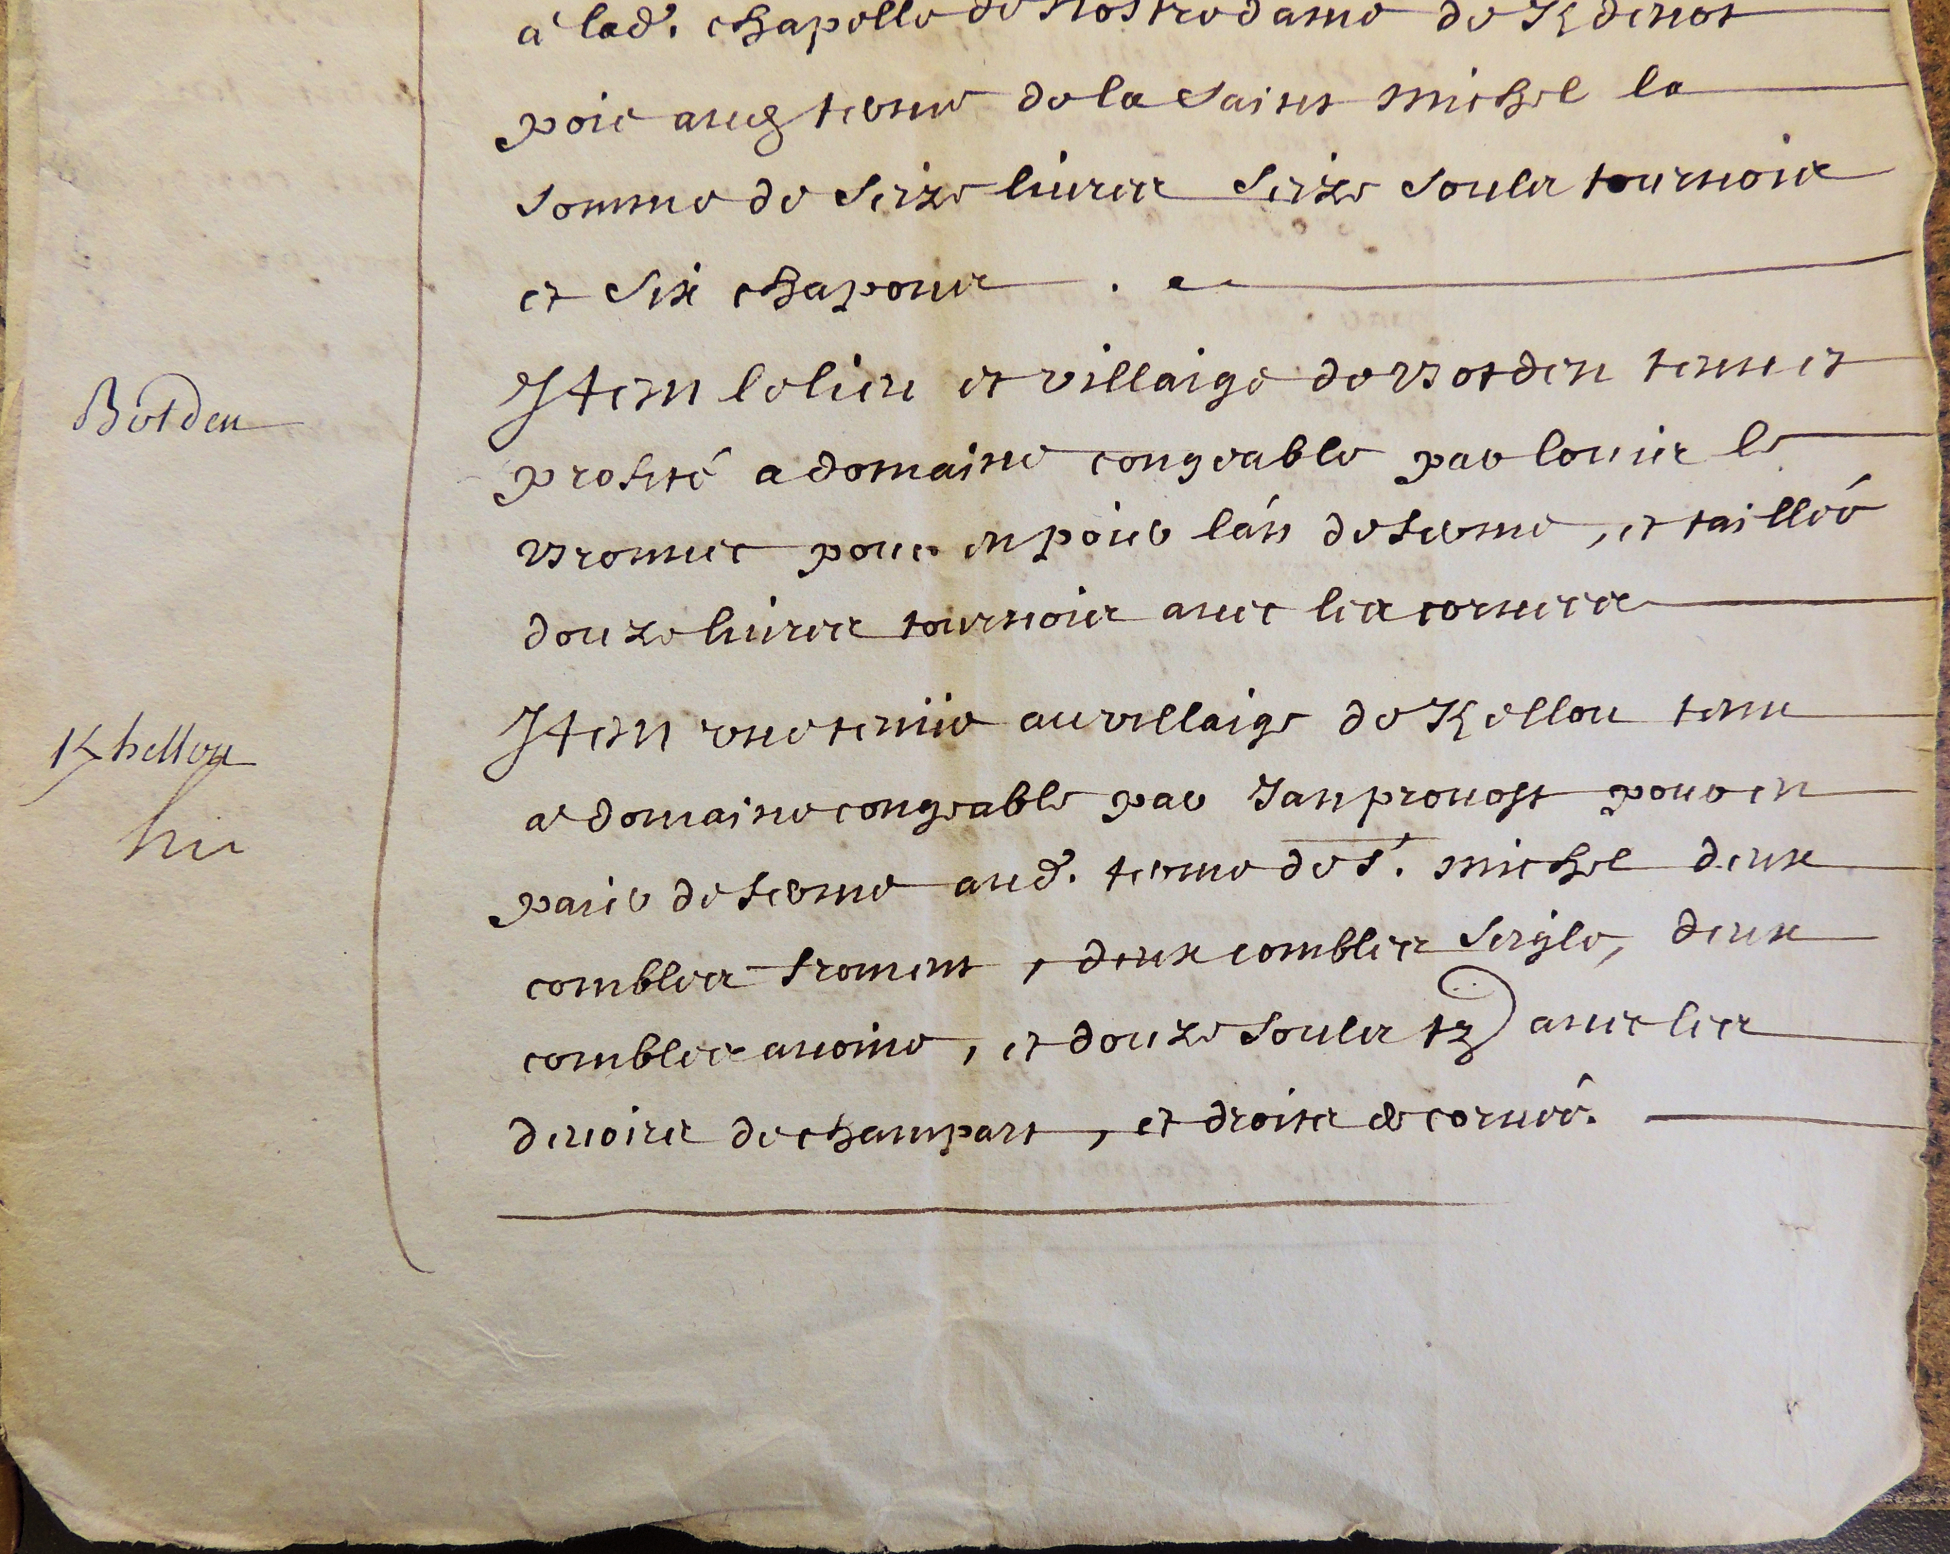 a lad. chapelle de nostredame de Kdenot
poie audt terme de la Saint Michel la
somme de seize livres seize soulz tournois
et six chapons
Botden
Item le lieu et villaige de Botden tenu et
profité a domaine congeable par Louis le
pour en poier l'an de ferme, et taillée
douze livres tournois avec les corvées
Khellou
Item une tenüe au villaige de Kellou tenu
a domaine congeable par Jan provost pour en
paier de ferme aud. terme de St. Michel deux
combles froment, deux combles seigle, deux
combles avoine, et douze soulz tz avec les
devoirs de champart, et droits & corvée.